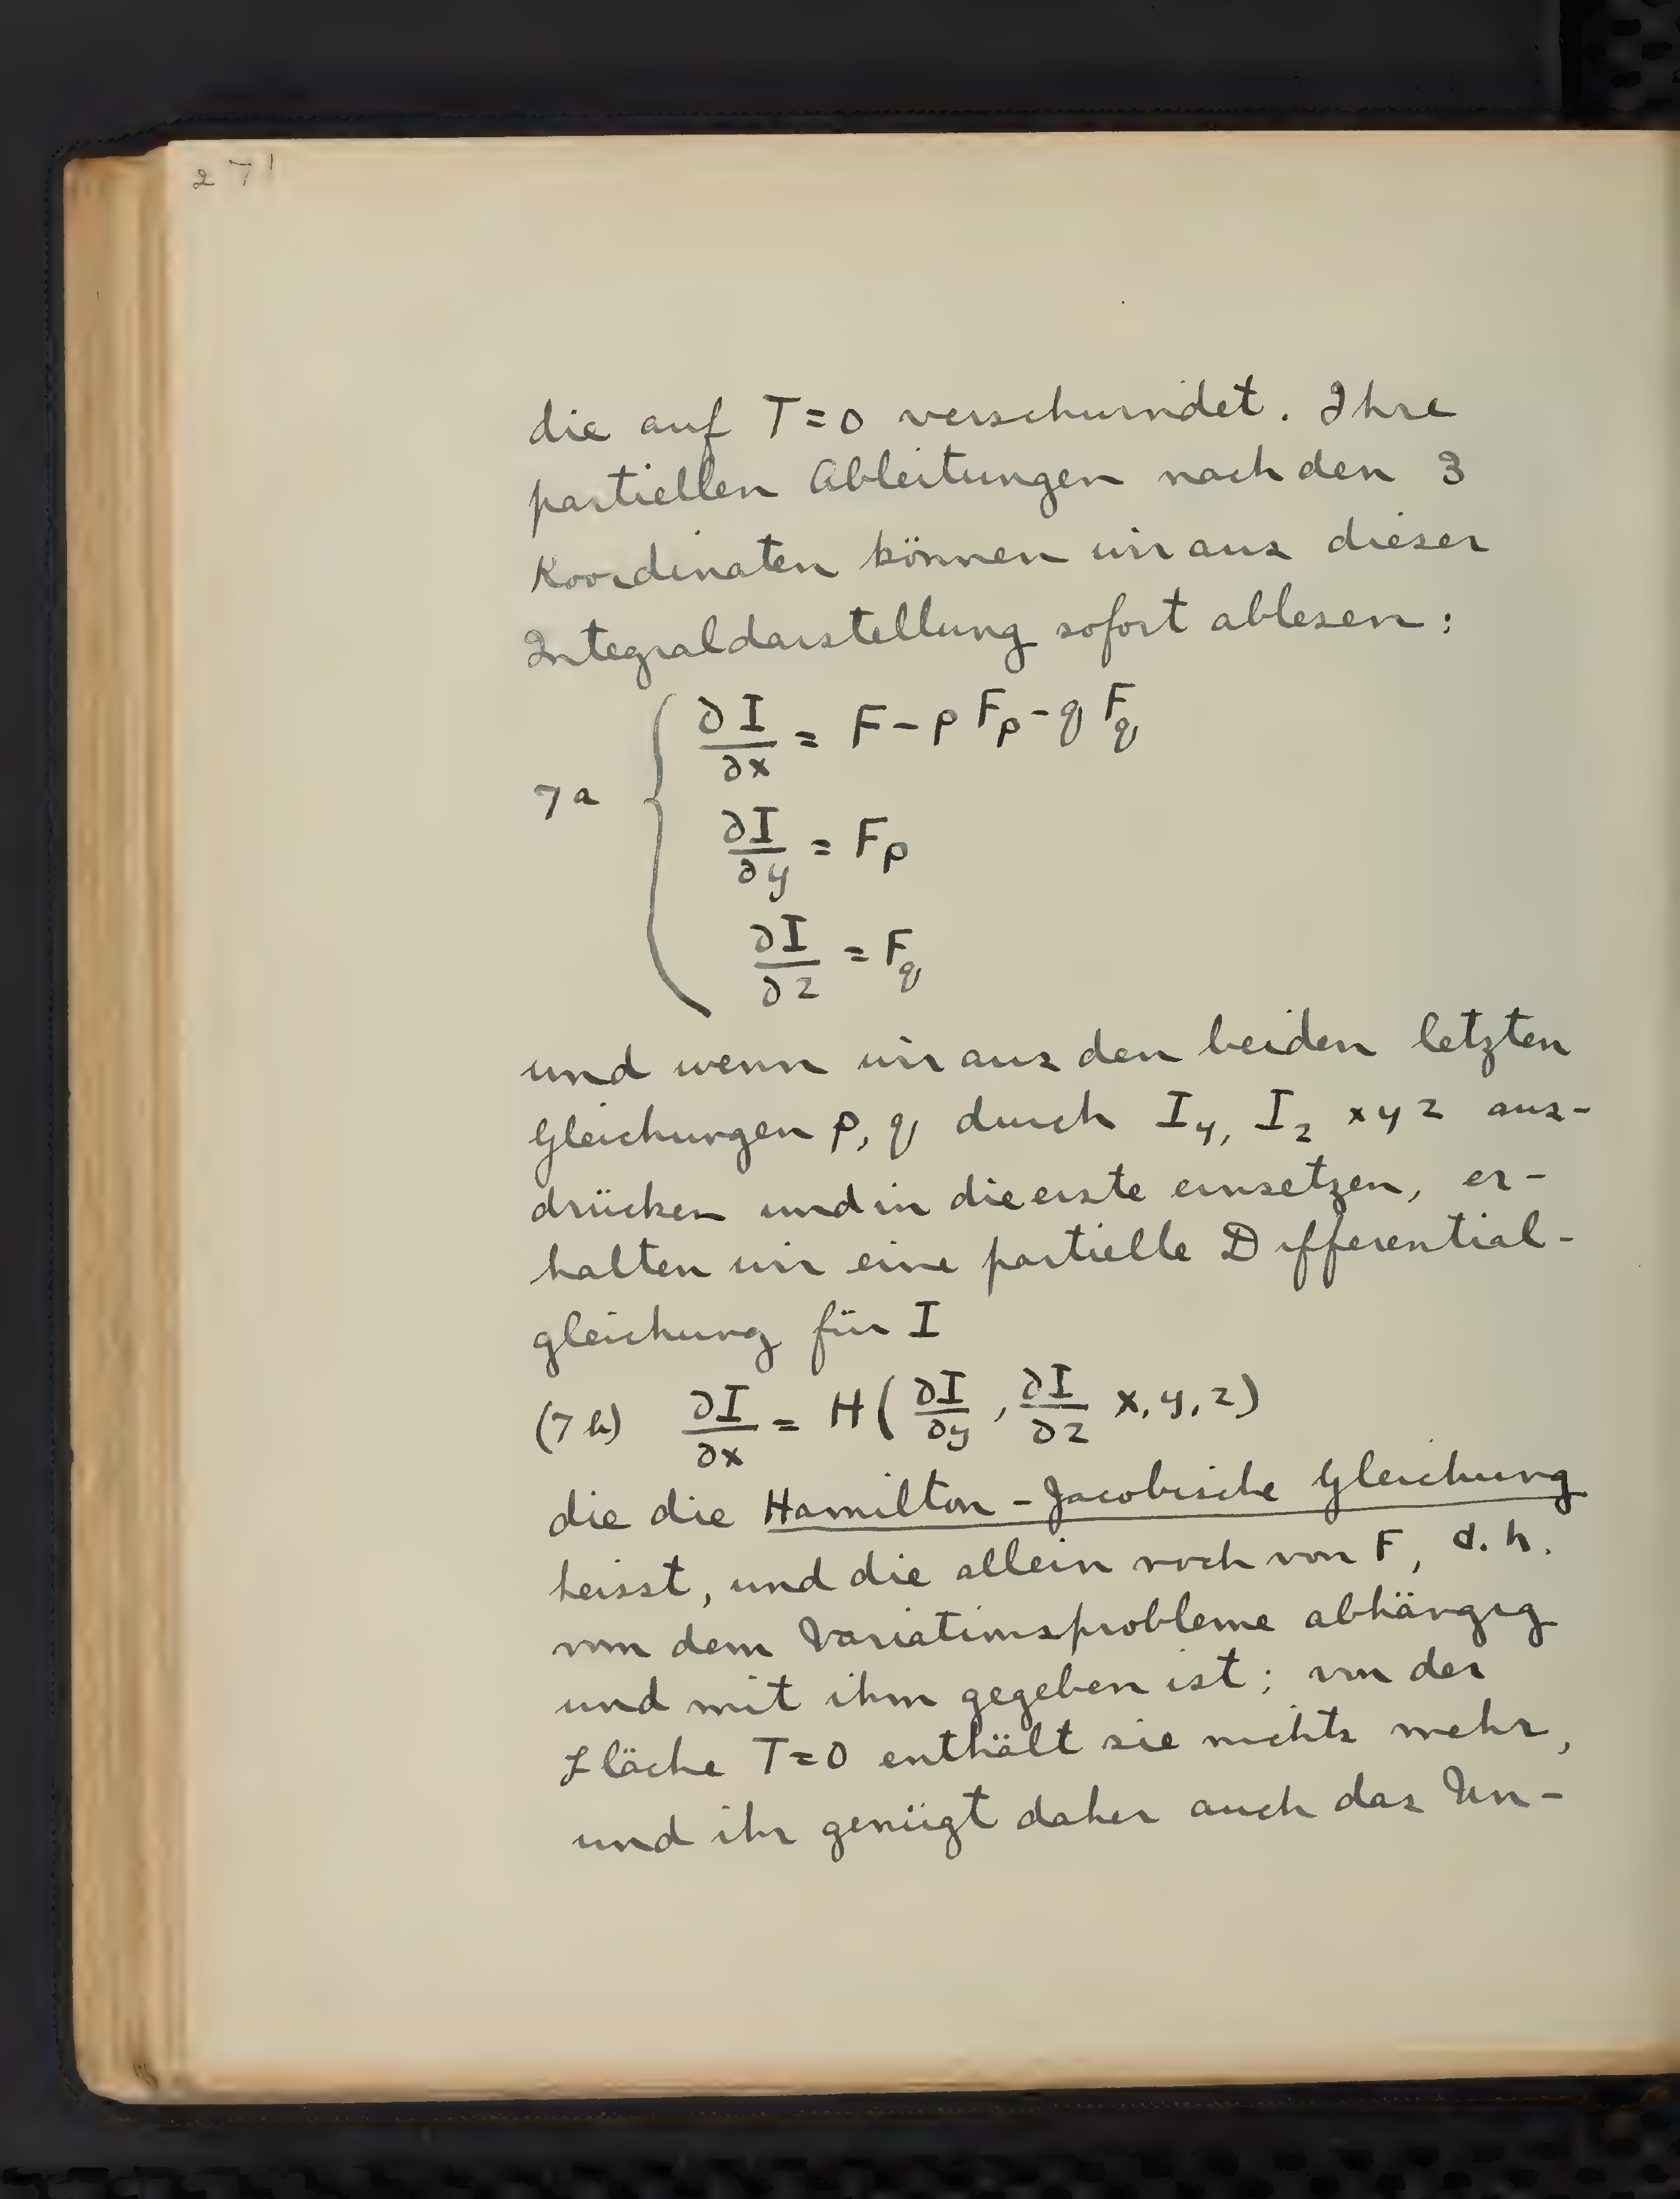 271
die auf T=0 verschwindet. Ihre
partiellen Ableitungen nach den 3
Koordinaten können wir aus dieser
Integraldarstellung sofort ablesen:
∂I/∂x = F - p F_p - q F_q
7a
∂I/∂y = F_p
∂I/∂z = F_q
und wenn wir aus den beiden letzten
Gleichungen p, q durch I_y, I_z x y z aus-
drücken und in die erste einsetzen, er-
halten wir eine partielle Differential-
gleichung für I
(7b) ∂I/∂x = H(∂I/∂y, ∂I/∂z x, y, z)
die die Hamilton-Jacobische Gleichung
heisst, und die allein noch von F, d. h.
von dem Variationsprobleme abhängig
und mit ihm gegeben ist; von der
Fläche T=0 enthält sie nichts mehr,
und ihr genügt daher auch das Un-